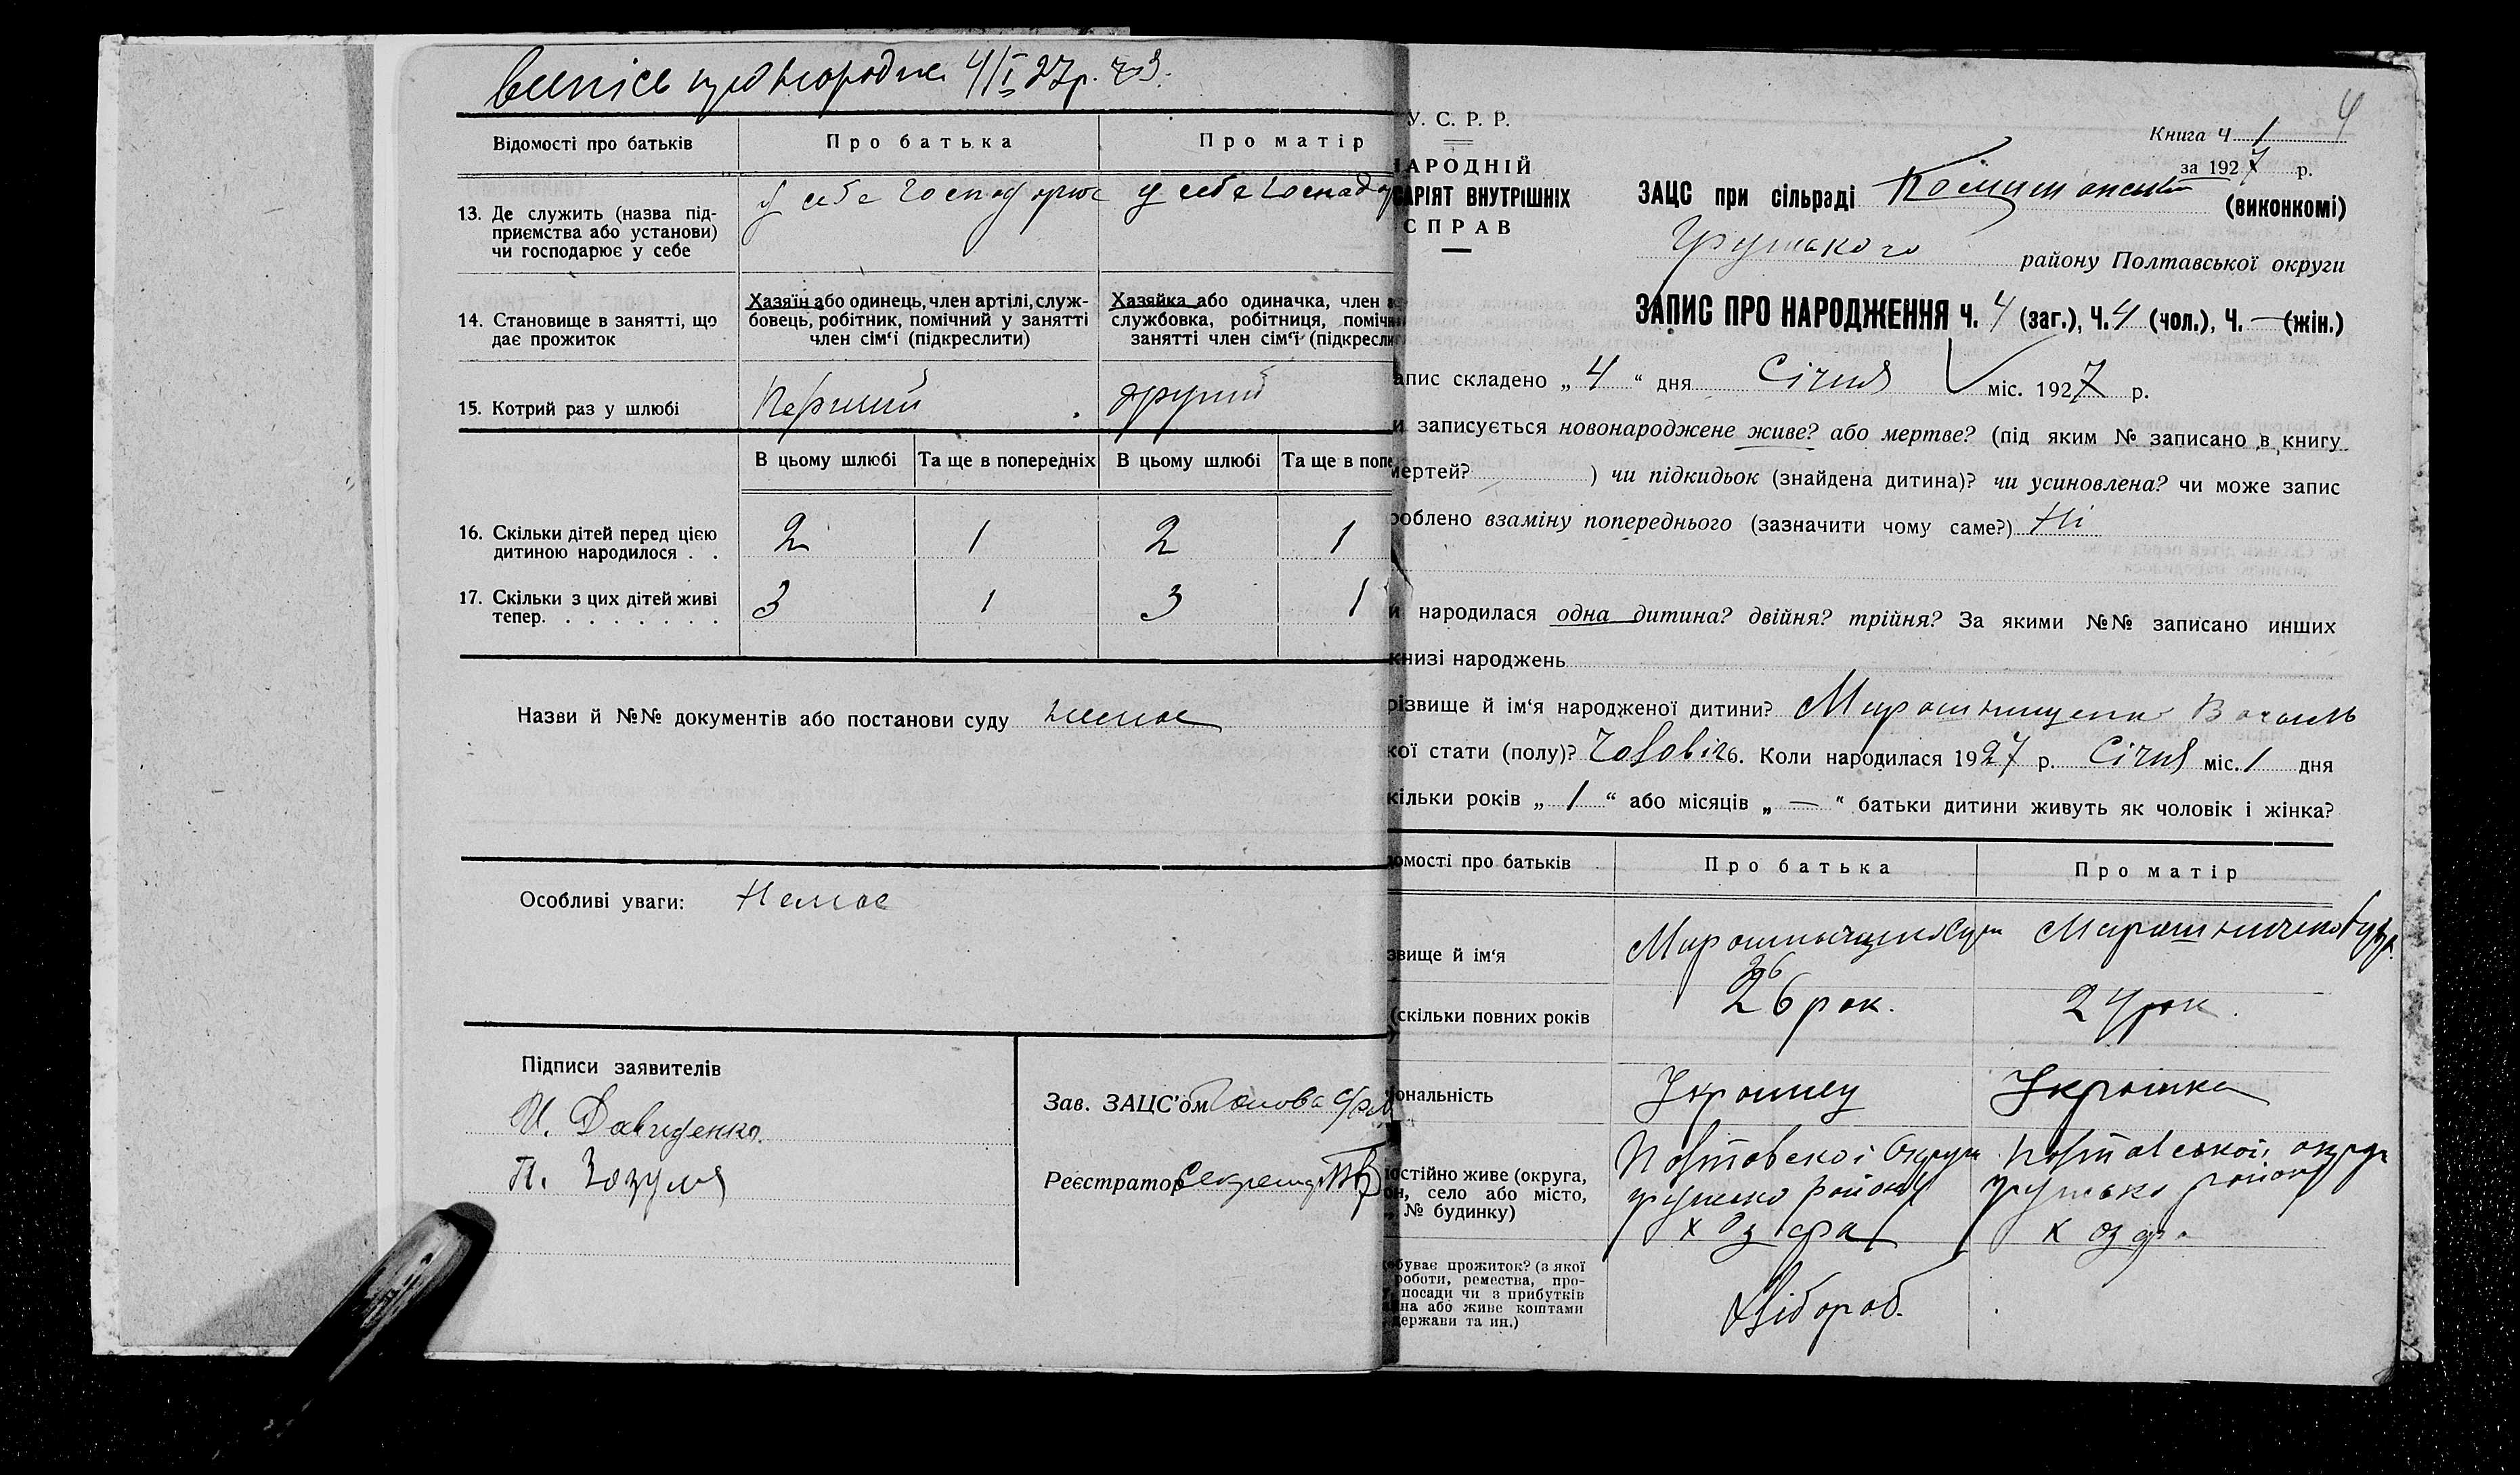 4/I 27р. ч 3.
Відомості про батьків
Про батька
Про матір
13. Де служить (назва під-
приємства або установи)
чи господарює у себе
у себе господарює
у себе господар
14. Становище в занятті, що
дає прожиток
Хазяїн або одинець, член артілі, служ-
бовець, робітник, помічний у занятті
член сім'ї (підкреслити)
Хазяйка або одиначка, член
службовка, робітниця, поміч
занятті член сім'ї (підкресли
15. Котрий раз у шлюбі
Перший
другий
В цьому шлюбі
Та ще в попередніх
В цьому шлюбі
Та ще в попе
16. Скільки дітей перед цією
дитиною народилося . .
2 1 2 1
17. Скільки з цих дітей живі
тепер. . . . . . . .
3 1 3 1
Назви й №№ документів або постанови суду немає
Особливі уваги: Немає
Підписи заявителів
И. Давиденко
П. Зозуля
Зав. ЗАЦС'ом Голова
Реєстратор Секретар
У. С. Р. Р.
НАРОДНІЙ
САРІЯТ ВНУТРІШНІХ
СПРАВ
Книга Ч 1
4
за 1927 р.
ЗАЦС при сільраді (виконкомі)
району Полтавської округи
ЗАПИС ПРО НАРОДЖЕННЯ Ч. 4 (заг.), Ч. 4 (чол.), Ч. — (жін.)
апис складено „ 4 “ дня Січня міс. 1927 р.
и записується новонароджене живе? або мертве? (під яким № записано в книгу
мертей? ) чи підкидьок (знайдена дитина)? чи усиновлена? чи може запис
роблено взаміну попереднього (зазначити чому саме?) Ні
и народилася одна дитина? двійня? трійня? За якими №№ записано инших
книзі народжень
різвище й ім'я народженої дитини? Мирошниченко Василь
кої стати (полу)? Чоловіч. Коли народилася 1927 р. Січня міс. 1 дня
кільки років „ 1 “ або місяців „ — “ батьки дитини живуть як чоловік і жінка?
омості про батьків
Про батька
Про матір
звище й ім'я
Мирошниченко
Мирошниченко
(скільки повних років
26
26 рок.
24 рок.
іональність
Украинец
Украінка
остійно живе (округа,
он, село або місто,
№ будинку)
Полтавскоі Округи
району
х Озера
Полтавськоі округи
району
х Оз
обуває прожиток? (з якої
роботи, ремества, про-
посади чи з прибутків
на або живе коштами
держави та ин.)
Хлібороб.